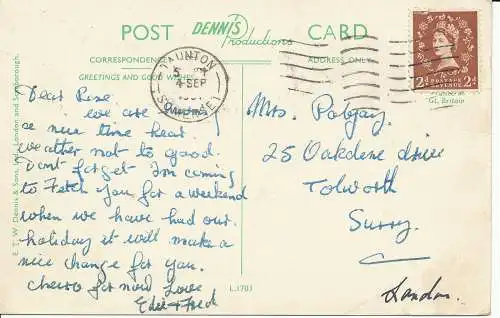 POST DENNIS Productions CARD
CORRESPONDENCE ADDRESS ONLY
GREETINGS AND GOOD WISHES
TAUNTON
4 SEP
SOMERSET
2d POSTAGE REVENUE 2d
Gt. Britain
E. T. W. Dennis & Sons, Ltd., London and Scarborough.
Dear Rose
we are having
a nice time hear
weather not to good
Dont forget Im coming
to Fetch you for a weekend
when we have had our
holiday it will make a
nice change for you.
cheiro for now Love
Edie + Fred
L.1703
Mrs. Pobjay
25 Oakdene drive
Tolworth
Surry
London.